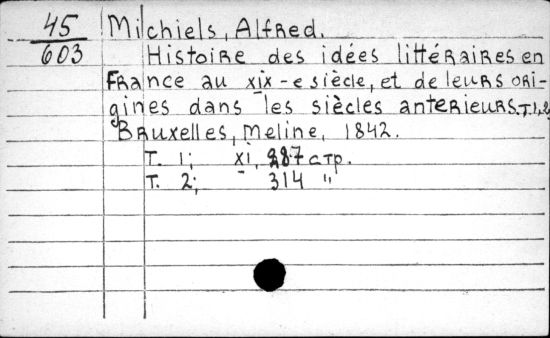 45 Michiels, Alfred.
603 Histoire des idées littéraires en
France au xix-e siècle, et de leurs ori-
gines dans les siècles anterieurs. T. 1, 2
Bruxelles, Meline, 1842.
T. 1; xi, 287 стр.
T. 2; 314 "